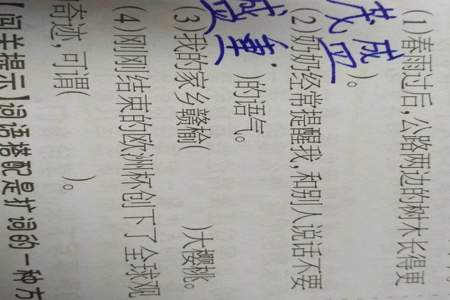 (1)春雨过后,公路两边的树木长得更
茂盛)。
(2)奶奶经常提醒我,和别人说话不要
重)的语气。
(3)我的家乡赣榆( )大樱桃。
(4)刚刚结束的欧洲杯创下了全球观
奇迹,可谓( )。
提示】词语搭配是扩词的一种方